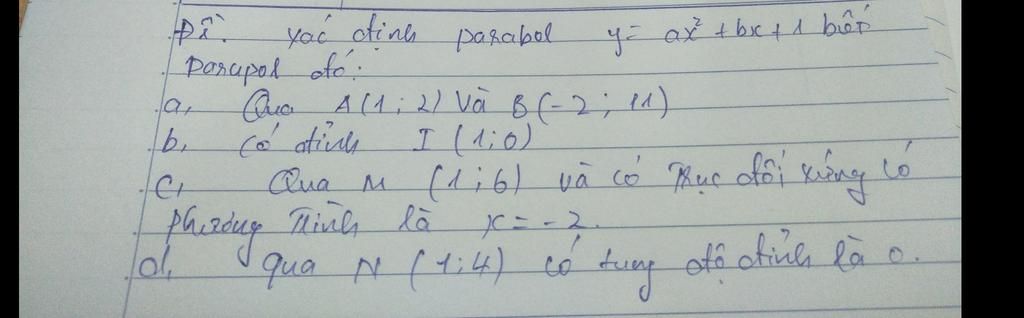 Đề: xác định parabol y = ax² + bx + 1 biết
parapol đó:
a, Qua A(1; 2) và B(-2; 11)
b, Có đỉnh I (1; 0)
c, Qua M (1; 6) và có trục đối xứng có
phương trình là x = -2.
d, qua N (1; 4) có tung độ đỉnh là 0.